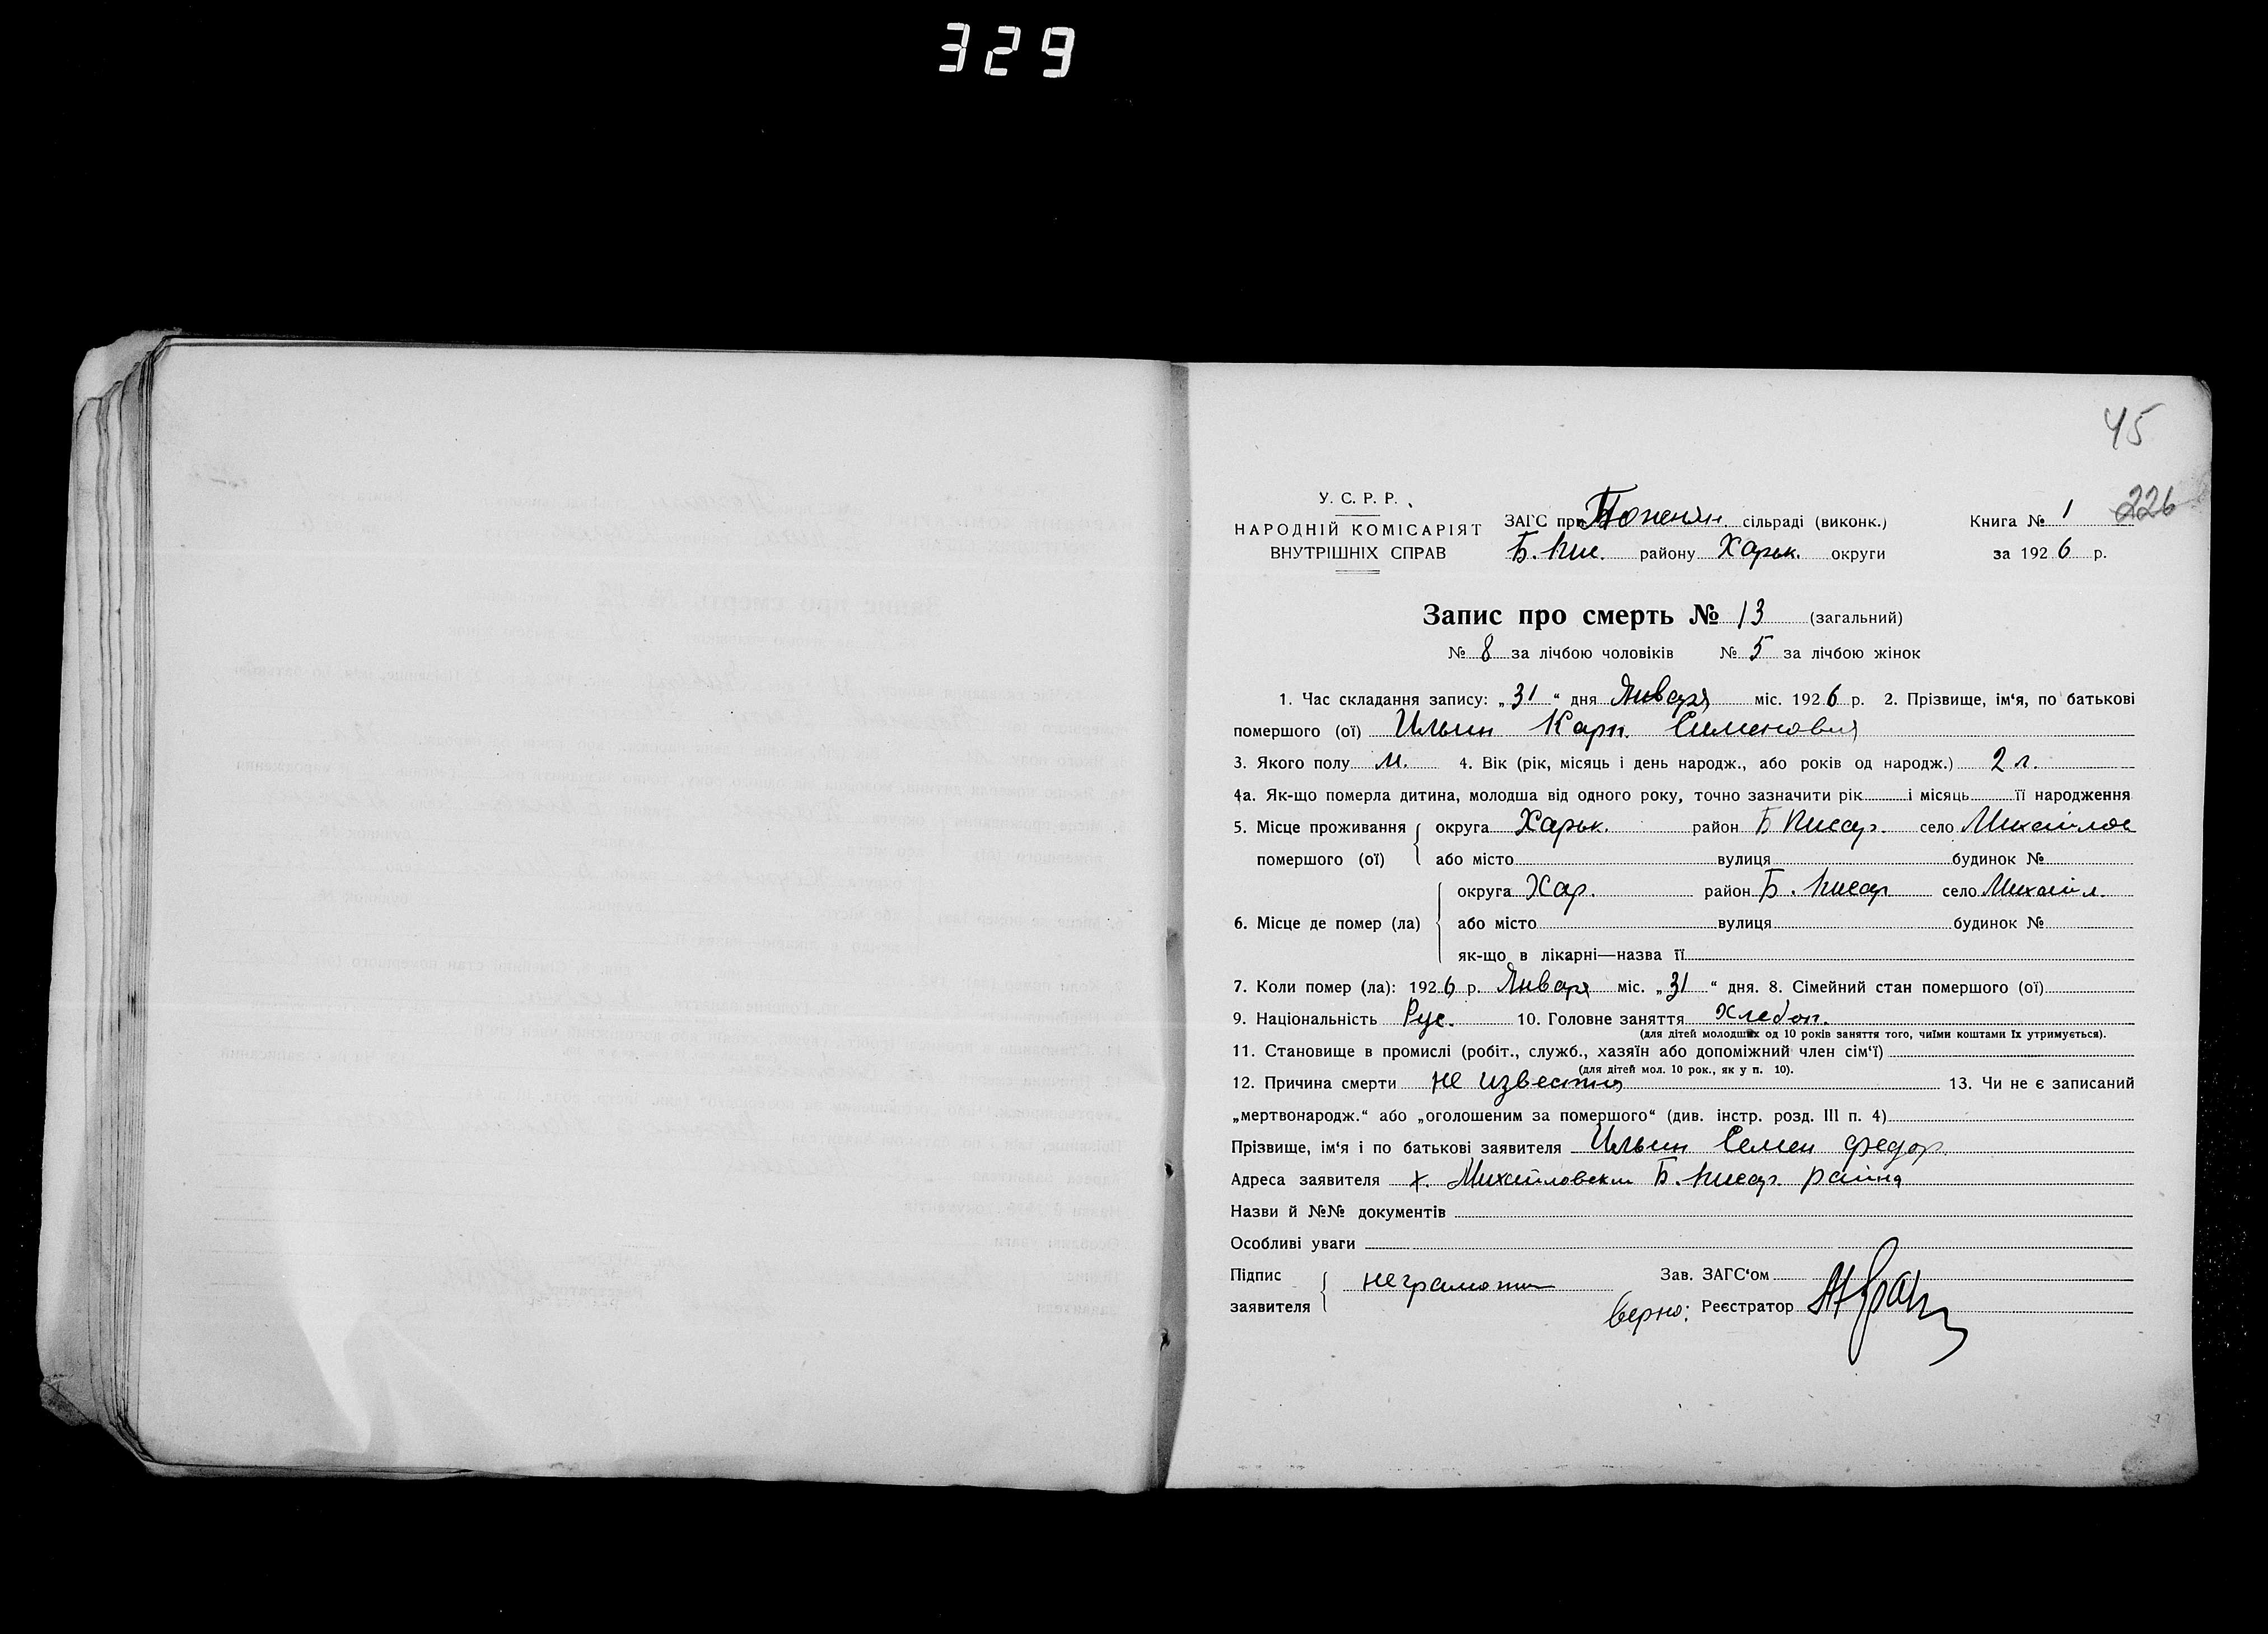 329
45
У. С. Р. Р.
НАРОДНІЙ КОМІСАРІЯТ
ВНУТРІШНІХ СПРАВ
ЗАГС при сільраді (виконк.)
Б. Пис. району Харьк. округи
Книга № 1
226
за 1926 р.
Запис про смерть № 13 (загальний)
№ 8 за лічбою чоловіків № 5 за лічбою жінок
1. Час складання запису: „31“ дня Января міс. 1926 р. 2. Прізвище, ім‘я, по батькові
помершого (ої) Ильин Карп. Семенович
3. Якого полу м. 4. Вік (рік, місяць і день народж., або років од народж.) 2 л.
4а. Як-що померла дитина, молодша від одного року, точно зазначити рік і місяць її народження
5. Місце проживання помершого (ої) округа Харьк. район Б Писар. село Михайлов
або місто вулиця будинок №
6. Місце де помер (ла) округа Хар. район Б. Писар село Михайл.
або місто вулиця будинок №
як-що в лікарні—назва її
7. Коли помер (ла): 1926 р. Января міс. „31“ дня. 8. Сімейний стан помершого (ої)
9. Національність Рус. 10. Головне заняття Хлебоп.
(для дітей молодших од 10 років заняття того, чиїми коштами їх утримується).
11. Становище в промислі (робіт., служб., хазяїн або допоміжний член сім‘ї)
(для дітей мол. 10 рок., як у п. 10).
12. Причина смерти не известна 13. Чи не є записаний
„мертвонародж.“ або „оголошеним за помершого“ (див. інстр. розд. III п. 4)
Прізвище, ім‘я і по батькові заявителя Ильин Семен Федор.
Адреса заявителя х. Михайловский Б. Писар. района
Назви й №№ документів
Особливі уваги
Підпис заявителя неграмотен
Зав. ЗАГС‘ом
Верно: Реєстратор